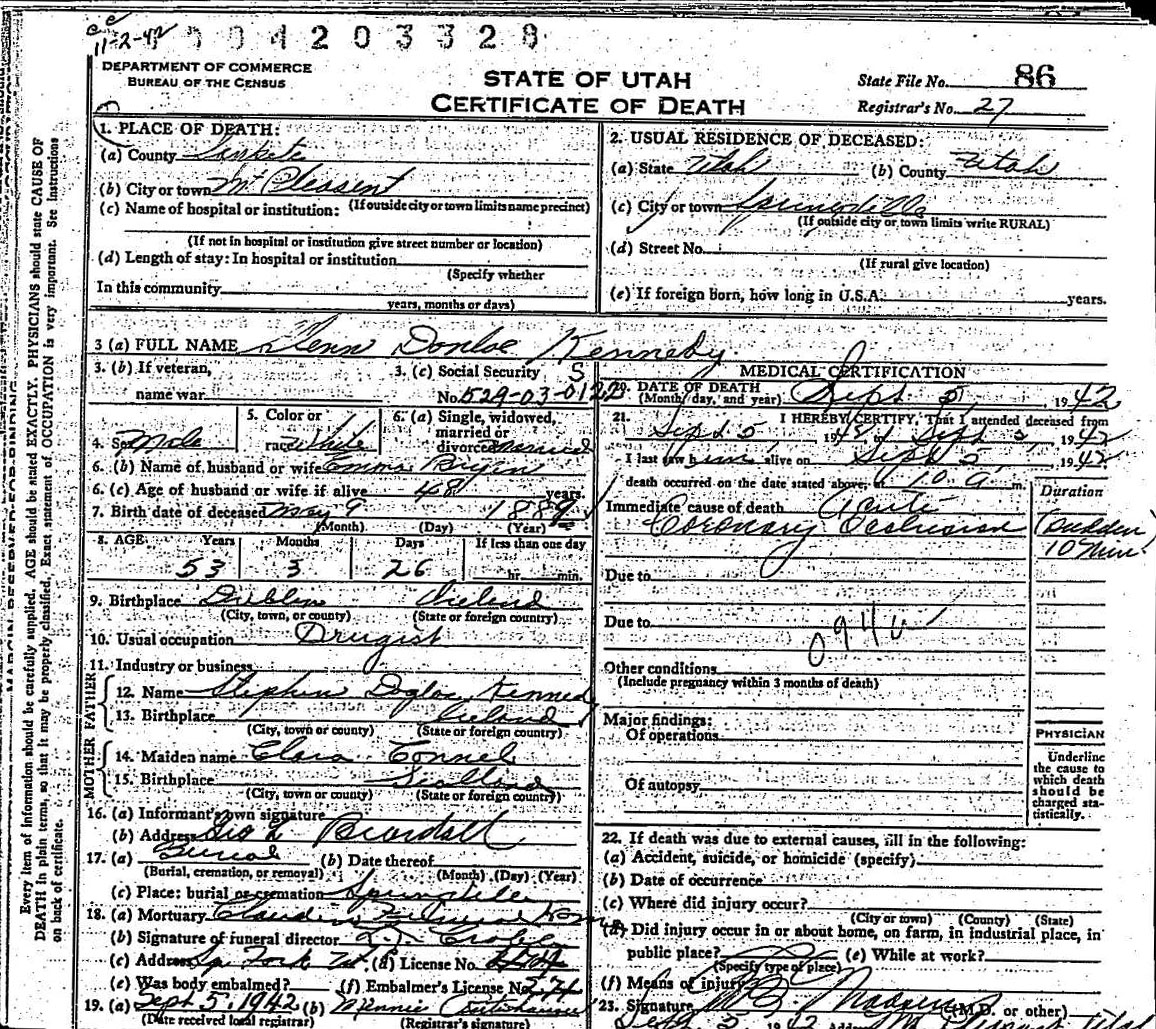 11-2-42
0 4 2 0 3 3 2 8
DEPARTMENT OF COMMERCE
BUREAU OF THE CENSUS
STATE OF UTAH
CERTIFICATE OF DEATH
State File No. 86
Registrar's No. 27
Every item of information should be carefully supplied. AGE should be stated EXACTLY. PHYSICIANS should state CAUSE OF
DEATH in plain terms, so that it may be properly classified. Exact statement of OCCUPATION is very important. See instructions
on back of certificate.
1. PLACE OF DEATH:
(a) County
(b) City or town Mt Pleasent
(c) Name of hospital or institution: (If outside city or town limits name precinct)
(If not in hospital or institution give street number or location)
(d) Length of stay: In hospital or institution
(Specify whether
In this community
years, months or days)
2. USUAL RESIDENCE OF DECEASED:
(a) State Utah (b) County Utah
(c) City or town Springville
(If outside city or town limits write RURAL)
(d) Street No.
(If rural give location)
(e) If foreign born, how long in U.S.A. years.
3 (a) FULL NAME Glenn Donloe Kennedy
3. (b) If veteran, 3. (c) Social Security
name war No. 529-03-0122
4. Sex Male 5. Color or race White 6. (a) Single, widowed, married or divorced Married
6. (b) Name of husband or wife Emma
6. (c) Age of husband or wife if alive 48 years.
7. Birth date of deceased May 9 1889
(Month) (Day) (Year)
8. AGE Years Months Days If less than one day
53 3 26 hr. min.
9. Birthplace Dublin Ireland
(City, town, or county) (State or foreign country)
10. Usual occupation Drugist
11. Industry or business
FATHER
12. Name Stephen Kennedy
13. Birthplace Ireland
(City, town or county) (State or foreign country)
MOTHER
14. Maiden name Clara Connel
15. Birthplace Scotland
(City, town or county) (State or foreign country)
16. (a) Informant's own signature
(b) Address Geo L Beardall
17. (a) Burial (b) Date thereof
(Burial, cremation, or removal) (Month) (Day) (Year)
(c) Place: burial or cremation Springville
18. (a) Mortuary Claudin Funeral Home
(b) Signature of funeral director
(c) Address Sp Fork Ut. (d) License No.
(e) Was body embalmed? (f) Embalmer's License No.
19. (a) Sept 5, 1942 (b) Minnie
(Date received local registrar) (Registrar's signature)
MEDICAL CERTIFICATION
20. DATE OF DEATH
(Month, day, and year) Sept. 5, 1942
21. I HEREBY CERTIFY, That I attended deceased from
Sept 5 1942 to Sept 5, 1942
I last saw him alive on Sept 5, 1942.
death occurred on the date stated above, 10 a m.
Duration
Immediate cause of death Acute
Coronary Occlusion (Sudden
10 min.
Due to
Due to
094
Other conditions
(Include pregnancy within 3 months of death)
Major findings:
Of operations
Of autopsy
PHYSICIAN
Underline
the cause to
which death
should be
charged sta-
tistically.
22. If death was due to external causes, fill in the following:
(a) Accident, suicide, or homicide (specify)
(b) Date of occurrence
(c) Where did injury occur?
(City or town) (County) (State)
(d) Did injury occur in or about home, on farm, in industrial place, in
public place? (e) While at work?
(Specify type of place)
(f) Means of injury
23. Signature (M.D. or other)
Sept 5 1942